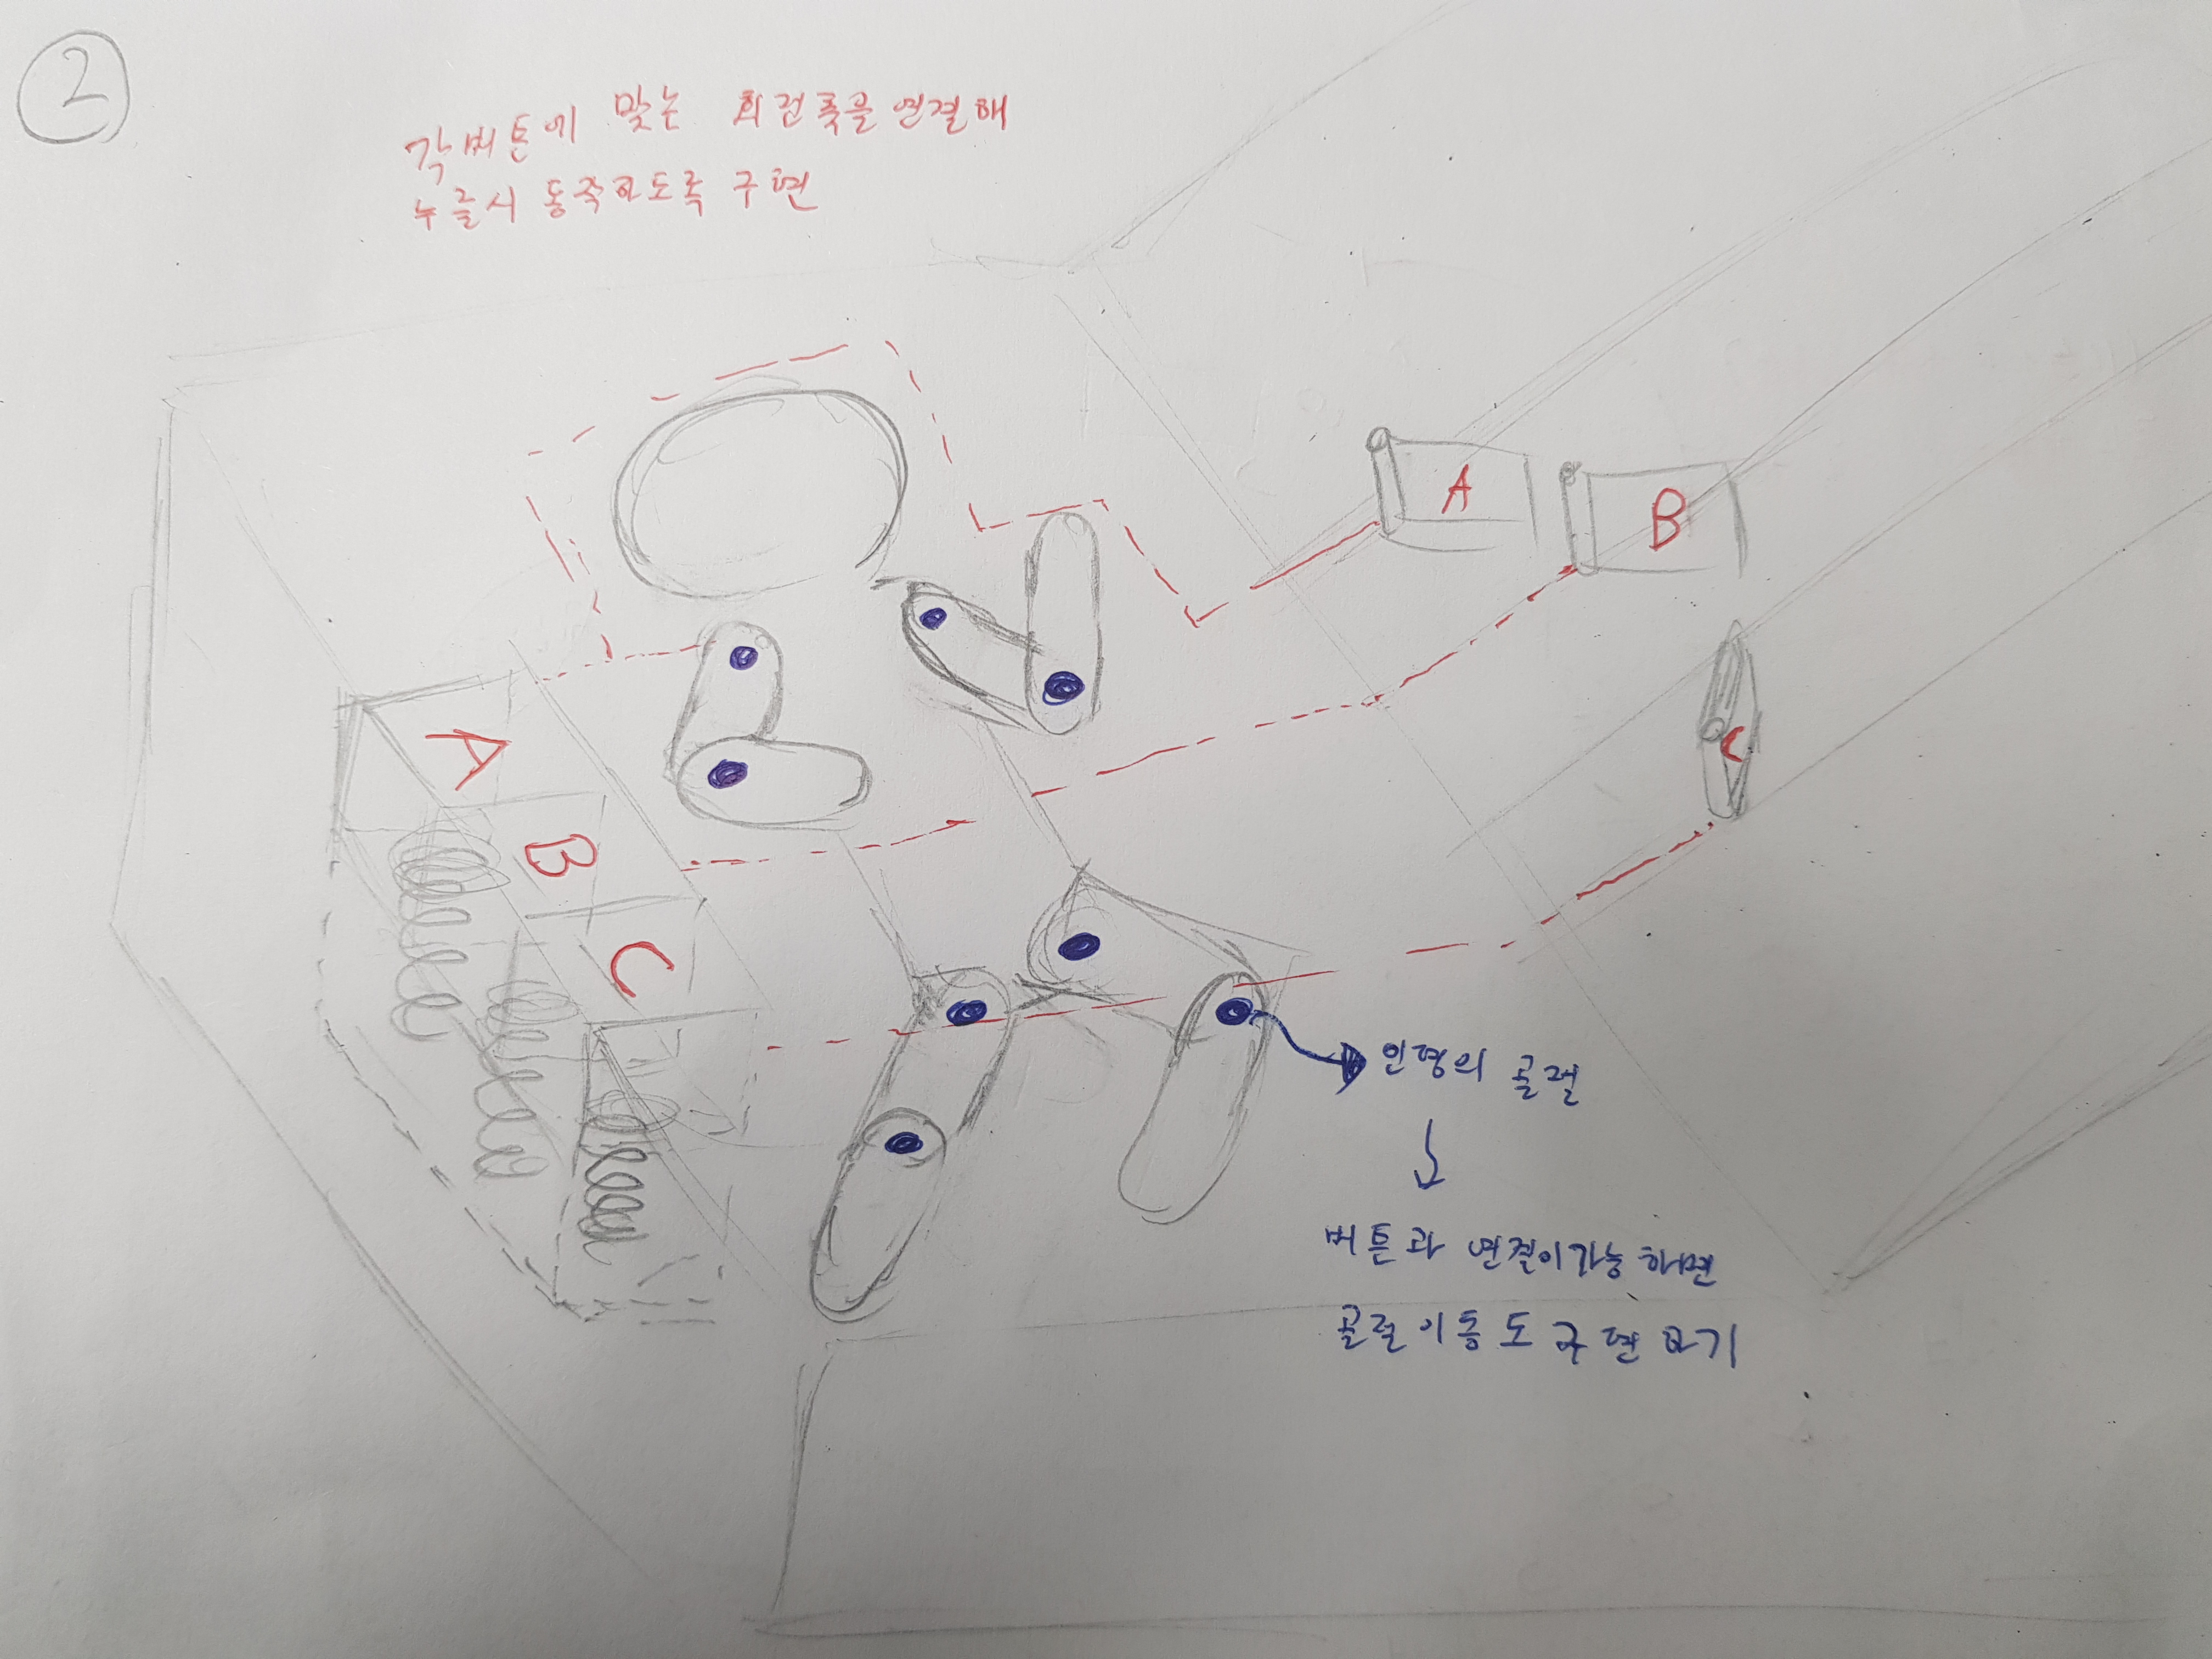 2
각 버튼에 맞는 회전축을 연결해
누를시 동작하도록 구현
A
B
A
C
B
C
인형의 골절
버튼과 연결이가능하면
골절이동도 구현하기